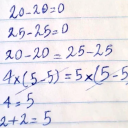 20-20=0
25-25=0
20-20=25-25
4×(5-5)=5×(5-5
4=5
2+2=5